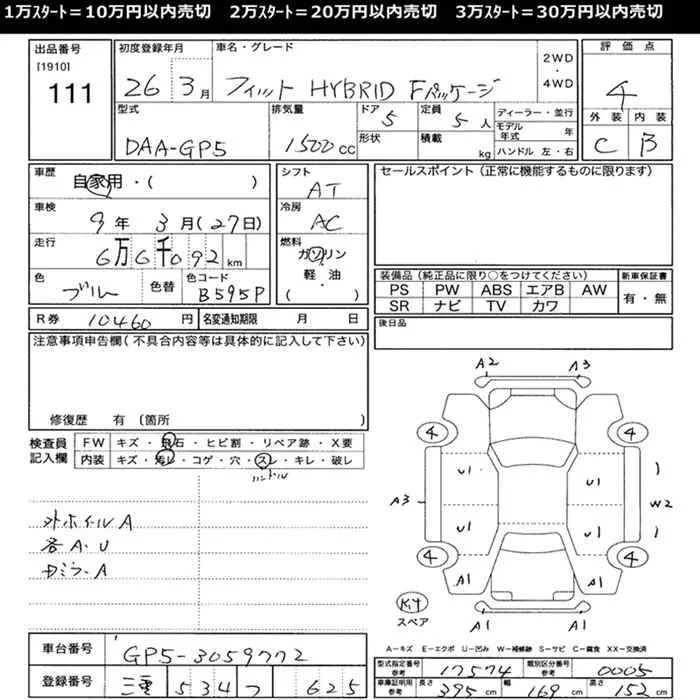 1万ｽﾀｰﾄ＝10万円以内売切　2万ｽﾀｰﾄ＝20万円以内売切　3万ｽﾀｰﾄ＝30万円以内売切
出品番号 初度登録年月 車名・グレード 評価点
[1910]
111 26 3月 フィット HYBRID Fパッケージ 2WD・4WD 4
型式 排気量 ドア 5 定員 5人 ディーラー・並行 外装 内装
DAA-GP5 1500cc 形状 積載 kg モデル年式 年 C B
ハンドル 左・右
車歴 自家用・( ) シフト AT セールスポイント（正常に機能するものに限ります）
車検 9年 3月(27日) 冷房 AC
走行 6万6千092km 燃料 ガソリン
軽・油
( ・ )
色 ブルー 色替 色コード B595P
装備品（純正品に限り○をつけてください） 新車保証書
PS PW ABS エアB AW 有・無
SR ナビ TV カワ
R券 10460円 名変通知期限 月 日 後日品
注意事項申告欄(不具合内容等は具体的に記入して下さい)
修復歴 有 (箇所 )
検査員記入欄 FW キズ・飛石・ヒビ割・リペア跡・X要
内装 キズ・汚レ・コゲ・穴・スレ・キレ・破レ
ハンドル
外ホイールA
各A・U
カミラーA
A2 A3
4 4
U1 U1
A3 W2
U1 U1
4 4
A1 A1
Kit
スペア
A1 A1
A－キズ E－エクボ U－凹み W－補修跡 S－サビ C－腐食 XX－交換済
車台番号 GP5-3059772
登録番号 三重 534 フ 625
型式指定番号 参考 17574 類別区分番号 参考 0005
車庫証明用 参考 長さ 395cm 幅 169cm 高さ 152cm